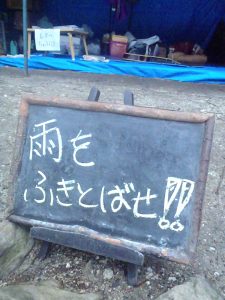 雨を
ふきとばせ!!